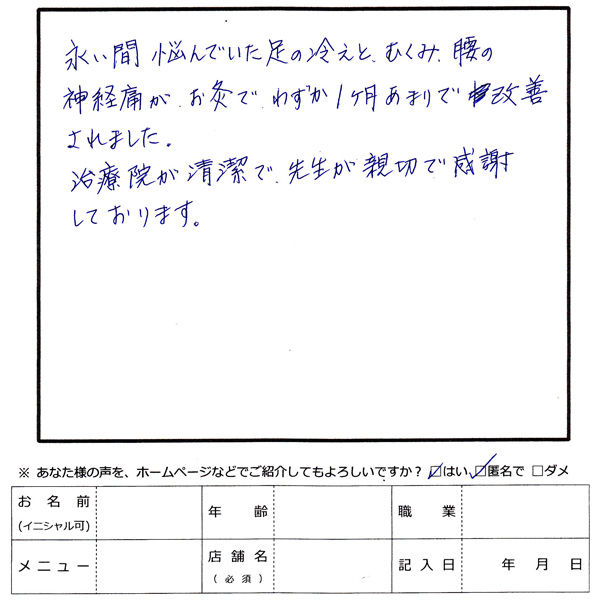 永い間 悩んでいた足の冷えと、むくみ、腰の
神経痛が、お灸で、わずか1ヶ月あまりで改善
されました。
治療院が清潔で、先生が親切で感謝
しております。
※ あなた様の声を、ホームページなどでご紹介してもよろしいですか？ ☑はい ☑匿名で □ダメ
お名前 (イニシャル可) 年齢 職業
メニュー 店舗名 (必須) 記入日 年 月 日